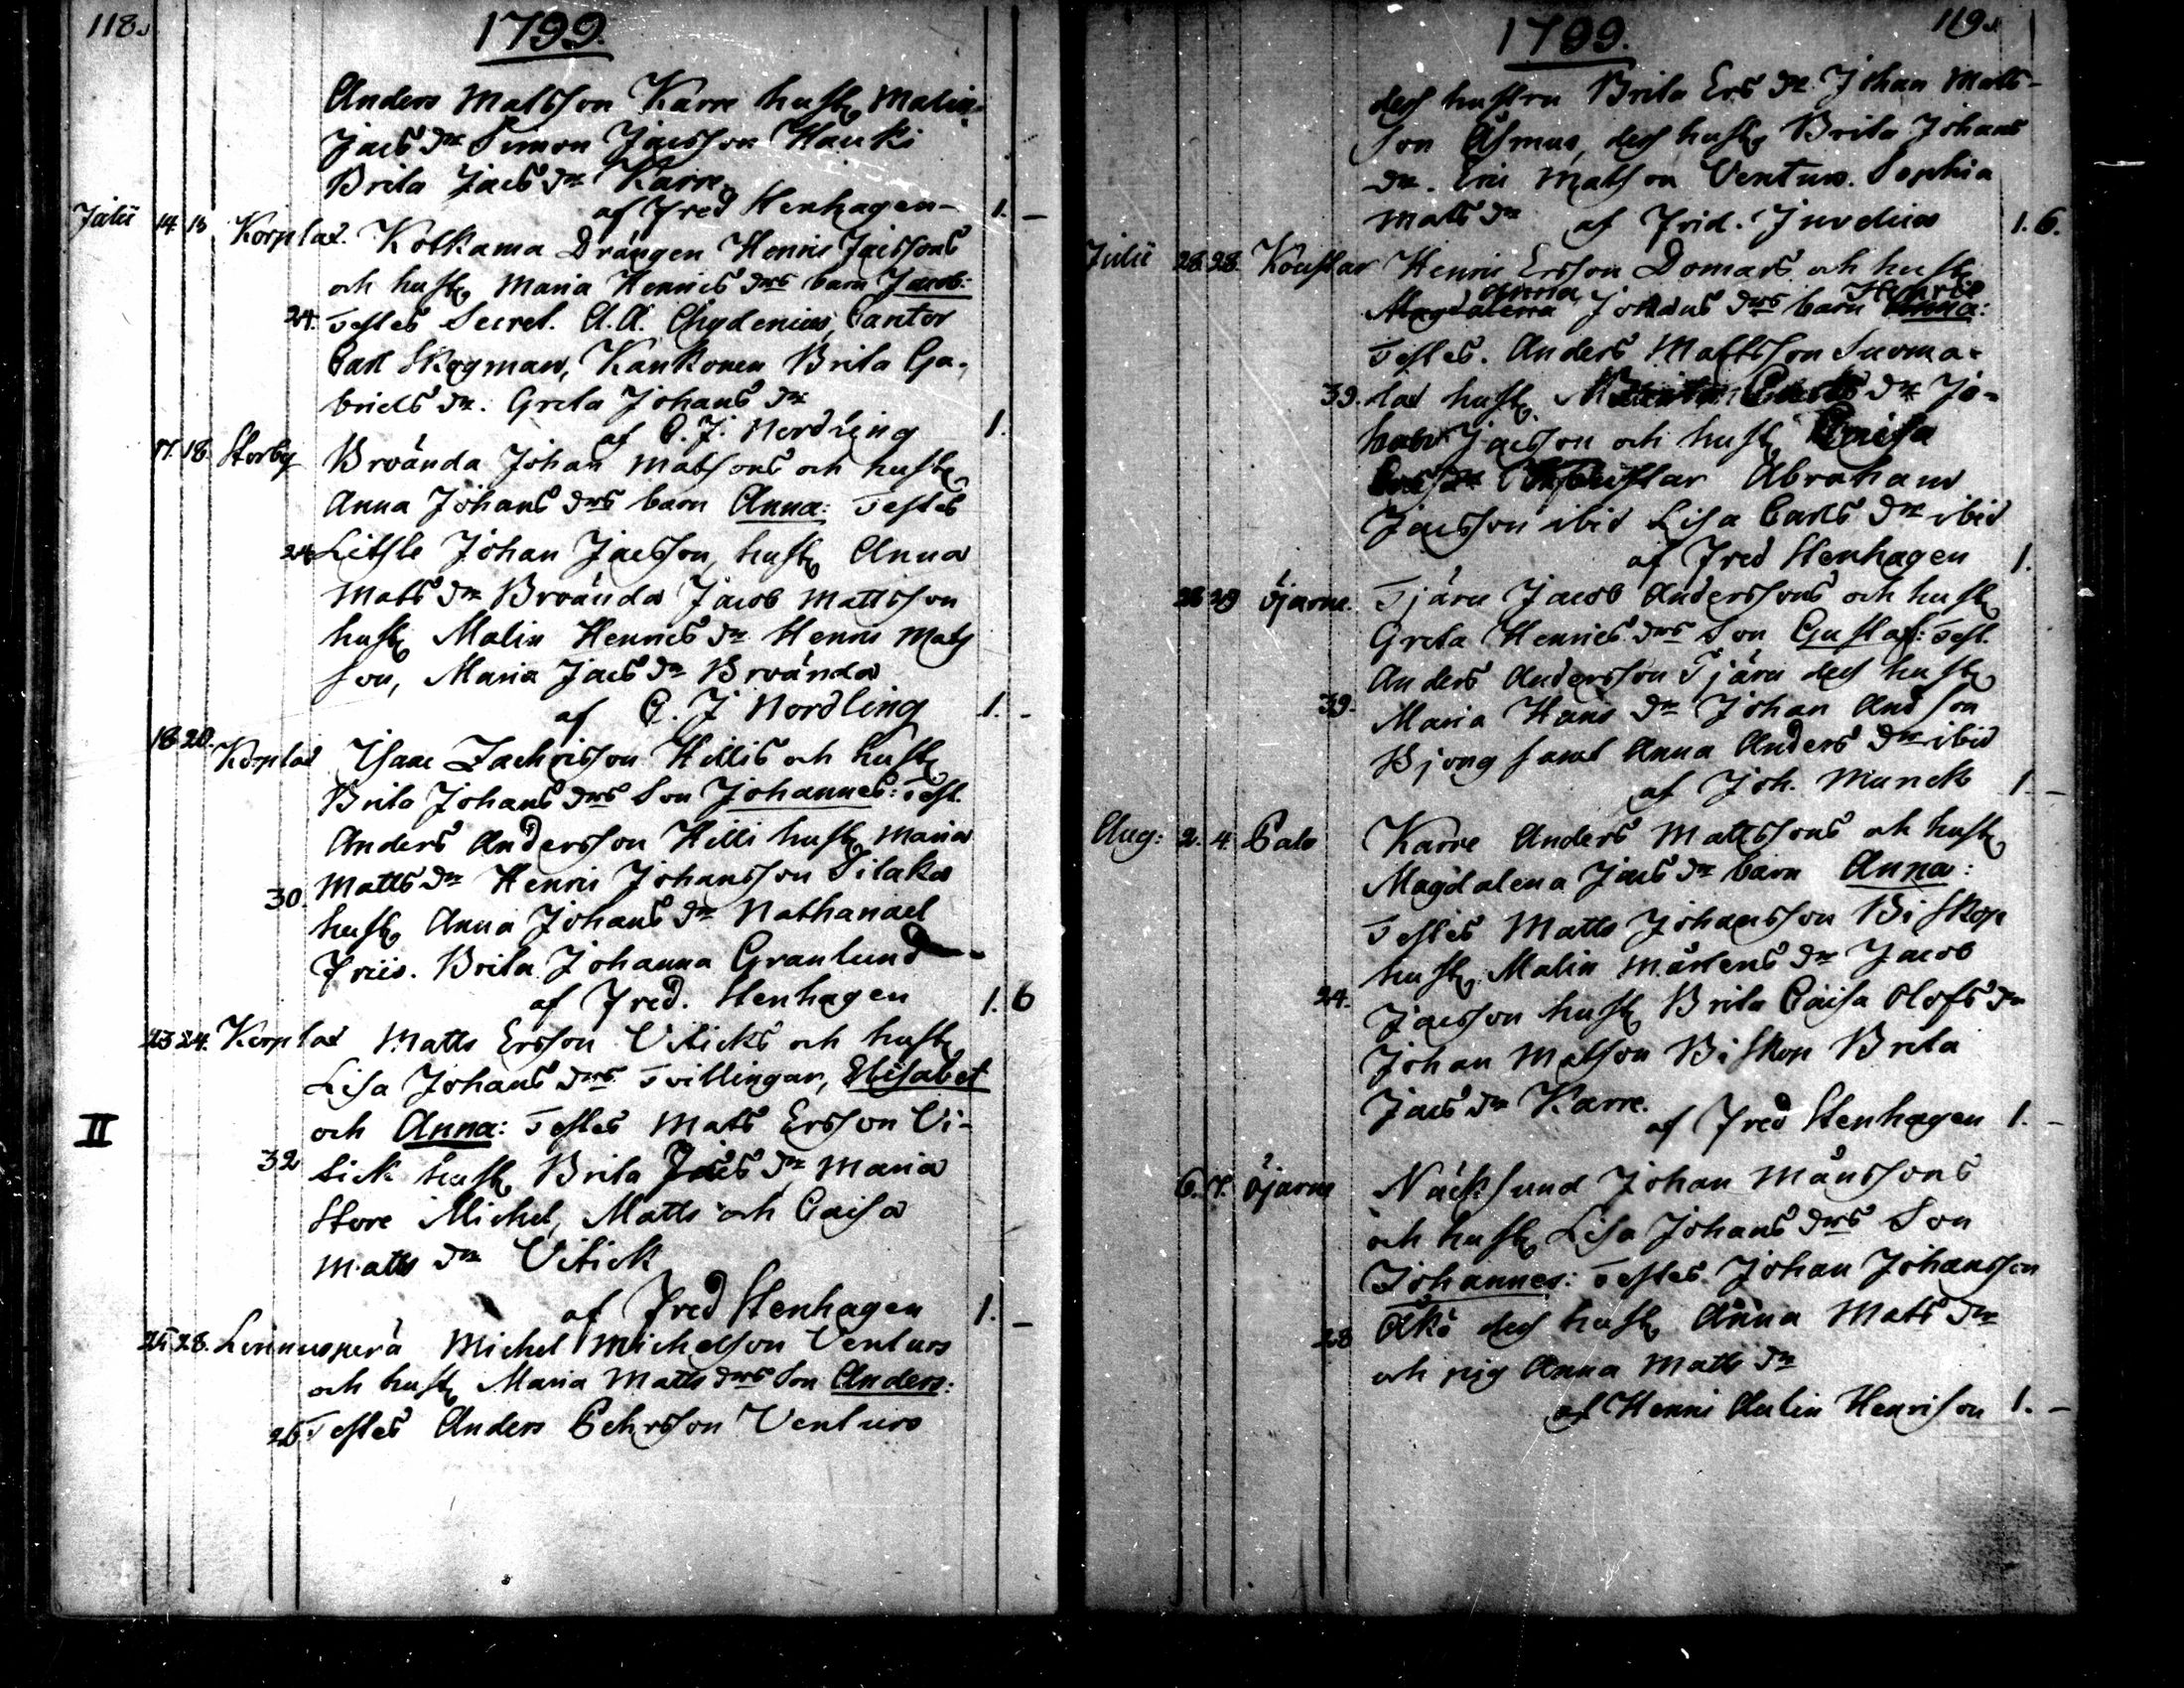 118.
1799.
Anders Matsson Karre hust. Malin
Jacs dr Simon Jacsson Hauki
Brita Jacs dr Karre.
af Fred Stenhagen 1. —
Julii 14. 15. Korplax. Kolkama Drängen Henric Jacssons
och hust. Maria Henrics drs barn Jacob:
24. Testes Secret. A. A. Chydenius, Cantor
Carl Skogman, Kankonen Brita Ga-
briels dr. Greta Johans dr
af C. J. Nordling 1.
17. 18. Storby Broända Johan Matsons och hust.
Anna Johans drs barn Anna: Testes
24 Litsle Johan Jacsson, hust. Anna
Mats dr Broända Jacob Mattsson
hust. Malin Henrics dr Henric Mats
son, Maria Jacs dr Broända
af C. J Nordling 1. -
18 20. Korplax Isaac Zachrisson Hillis och hust.
Brita Johans drs Son Johannes: Test.
Anders Andersson Hilli hust. Maria
30 Matts dr Henric Johansson Silaka
hust. Anna Johans dr Nathanael
Friis. Brita Johanna Granlund
af Fred. Stenhagen 1. 6
23 24. Korplax Matts Ersson Viticks och hust.
Lisa Johans drs Tvillingar, Elisabet
II och Anna: Testes Mats Ersson Vi-
32 tick hust. Brita Jacs dr Maria
Store Michel, Matts och Caisa
Matts dr Vitick
af Fred Stenhagen 1. —
25 28. Linnusperä Michel Michelson Venturs
och hust. Maria Matts drs Son Anders:
26. Testes Anders Pehrsson Venturs
1799. 119.
des hustru Brita Ers dr. Johan Matts-
son Asmus, des hust. Brita Johans
dr. Eric Matson Ventus. Sophia
Matts dr af Frid. Juvelius 1. 6.
Julii 28. 28. Kouflar Henric Ersson Domars och hust.
Anna Henric
Magdalena Johans drs barn Anna:
Testes. Anders Mattsson Suoma-
39. lax hust. dr Jo-
han Jacsson och hust. Caisa
Abraham
Jacsson ibid Lisa Carls dr ibid
af Fred Stenhagen 1.
28 29 Öjarne. Tjäru Jacob Anderssons och hust.
Greta Henrics drs Son Gustaf: Test.
Anders Andersson Tjäru des hust.
39. Maria Hans dr Johan Andson
Bjong samt Anna Anders dr ibid
af Joh. Munck 1. —
Aug: 2. 4. Palo Karre Anders Mattssons och hust.
Magdalena Jacs dr barn Anna:
Testes Matts Johansson Biskop
hust. Malin Mårtens dr Jacob
24. Jacsson hust. Brita Caisa Olofs dr
Johan Matson Biskop Brita
Jacs dr Karre.
af Fred Stenhagen 1. —
6. 7. Öjarne Näcksund Johan Månssons
och hust. Lisa Johans drs Son
Johannes: Testes. Johan Johansson
28 Åkö des hust. Anna Mats dr
och pig Anna Matts dr
af Henric Aulin Henrison 1. —